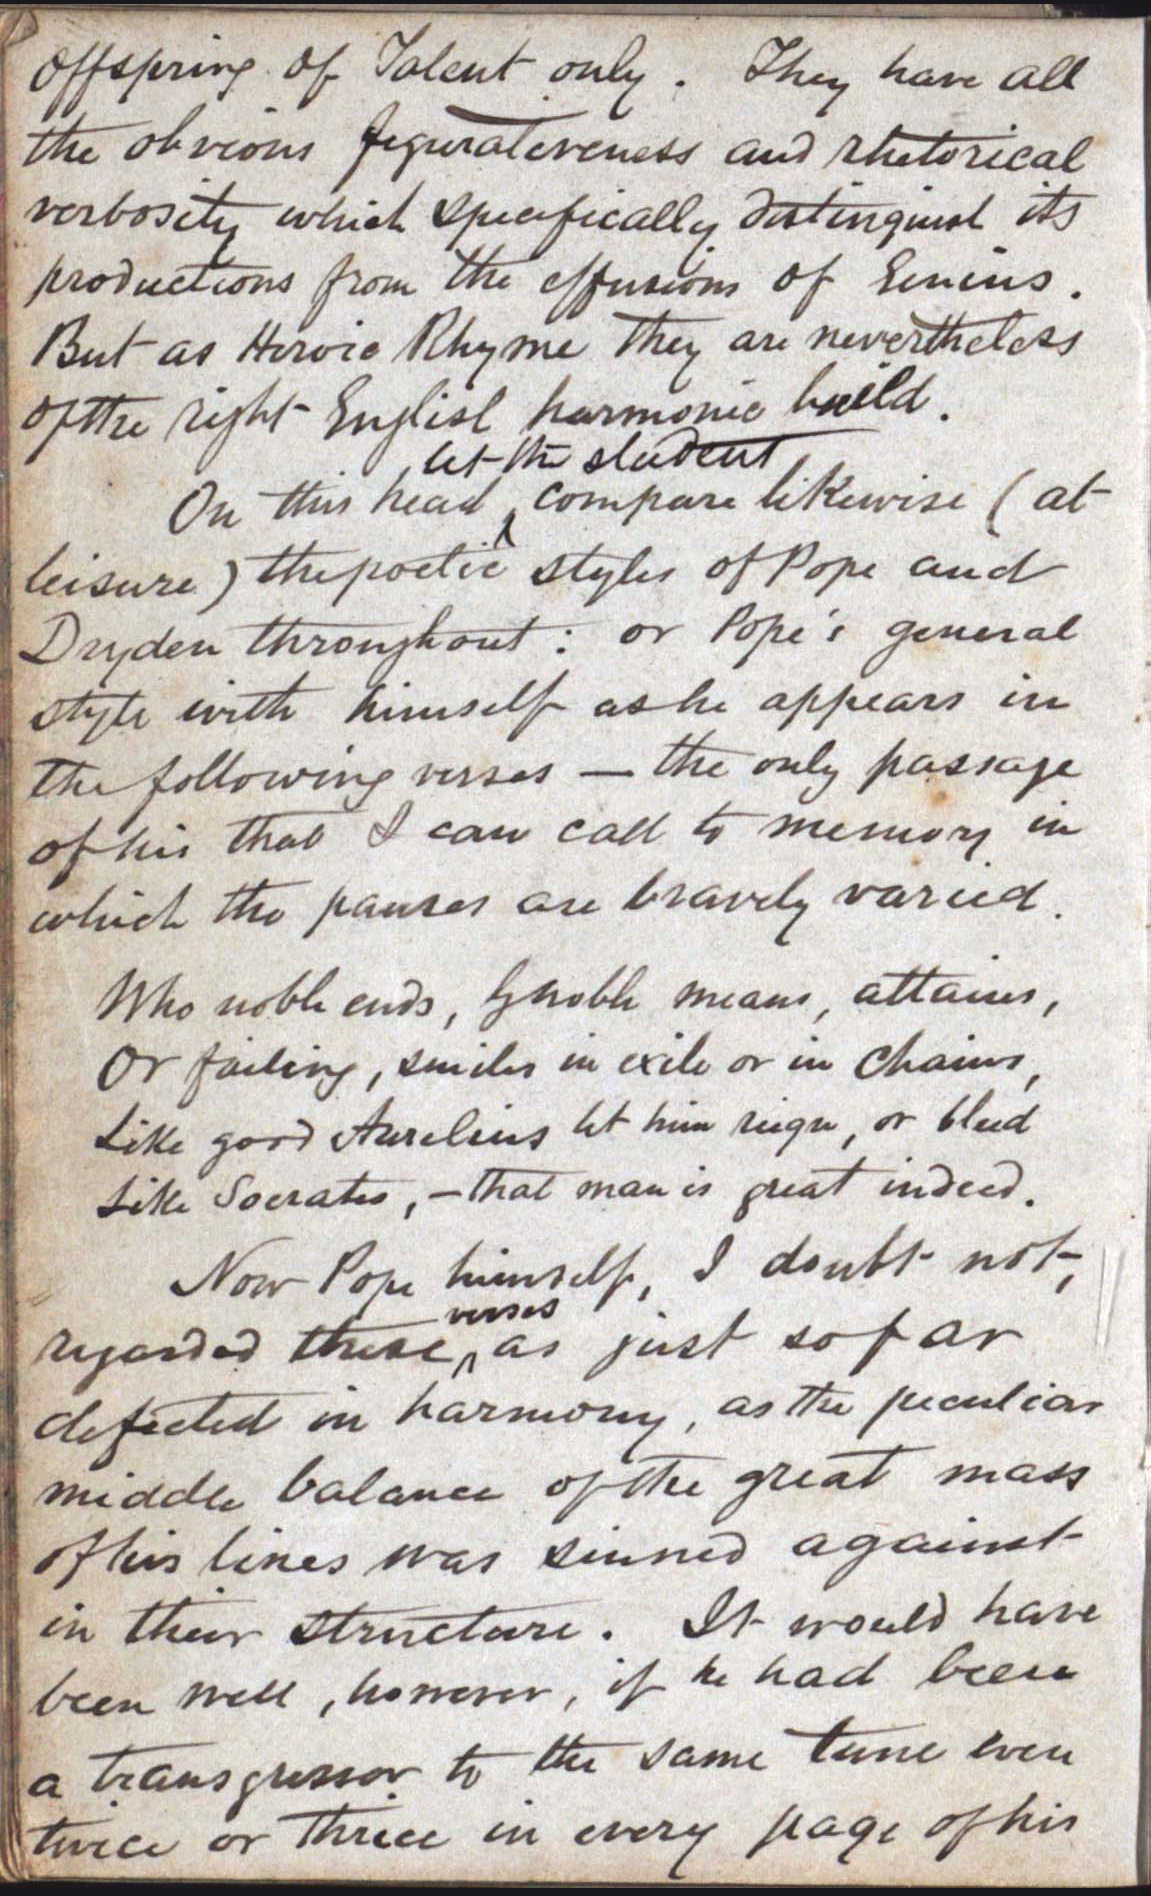 offspring of Talent only. They have all
the obvious figurativeness and rhetorical
verbosity which specifically distinguish its
productions from the effusions of Genius.
But as Heroic Rhyme they are nevertheless
of the right English harmonic build.
let the student
On this head ‸ compare likewise (at
leisure) the poetic styles of Pope and
Dryden throughout: or Pope's general
style with himself as he appears in
the following verses — the only passage
of his that I can call to memory in
which the pauses are bravely varied.
Who noble ends, by noble means, attains,
Or failing, smiles in exile or in chains,
Like good Aurelius let him reign, or bleed
Like Socrates, — that man is great indeed.
Now Pope himself, I doubt not,
verses
regarded these ‸ as just so far
defected in harmony, as the peculiar
middle balance of the great mass
of his lines was sinned against
in their structure. It would have
been well, however, if he had been
a transgressor to the same tune even
twice or thrice in every page of his